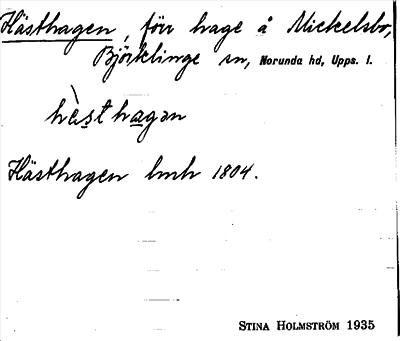 Hästhagen, förr hage å Mickelsbo,
Björklinge sn, Norunda hd, Upps. l.
hὲsthagən
Hästhagen lmh 1804.
STINA HOLMSTRÖM 1935